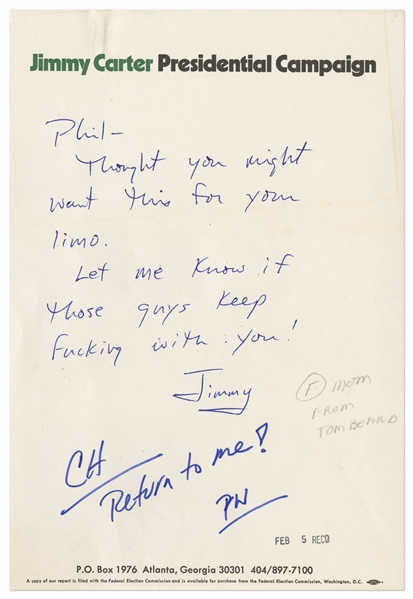 Jimmy Carter Presidential Campaign
Phil-
Thought you might
want this for your
limo.
Let me know if
those guys keep
fucking with you!
Jimmy
F MEM
FROM
TOM
CH
Return to me!
PW
FEB 5 RECD
P.O. Box 1976 Atlanta, Georgia 30301 404/897-7100
A copy of our report is filed with the Federal Election Commission and is available for purchase from the Federal Election Commission, Washington, D.C.